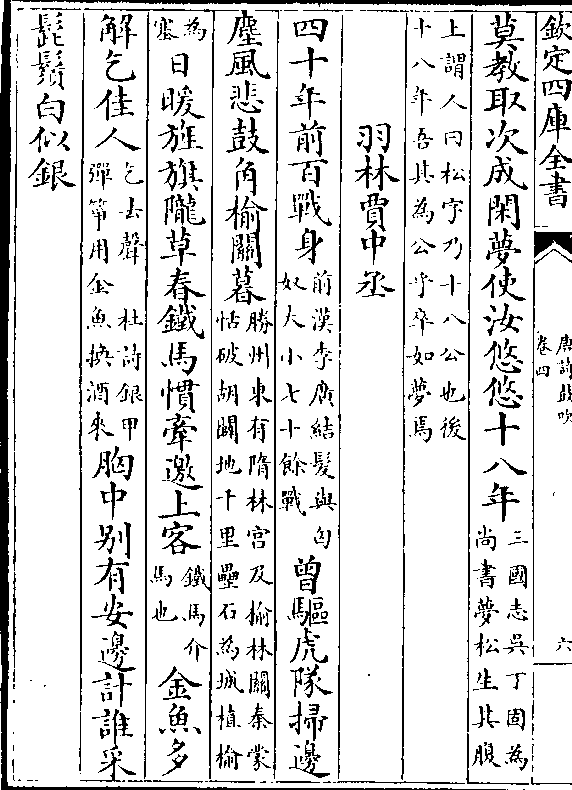 欽定四庫全書
唐詩鼓吹
卷四
六
莫教取次成閑夢使汝悠悠十八年
三國志吳丁固為
尚書夢松生其腹
上謂人曰松字乃十八公也後
十八年吾其為公乎卒如夢焉
羽林賈中丞
四十年前百戰身
前漢李廣結髮與匈
奴大小七十餘戰
曾驅虎隊掃邊
塵風悲鼓角榆關暮
勝州東有隋林宮及榆林關秦蒙
恬破胡闢地千里壘石為城植榆
為
塞
日暖旌旗隴草春鐵馬慣牽邀上客
鐵馬介
馬也
金魚多
解乞佳人
乞去聲 杜詩銀甲
彈箏用金魚換酒來
胸中別有安邊計誰采
髭鬚白似銀